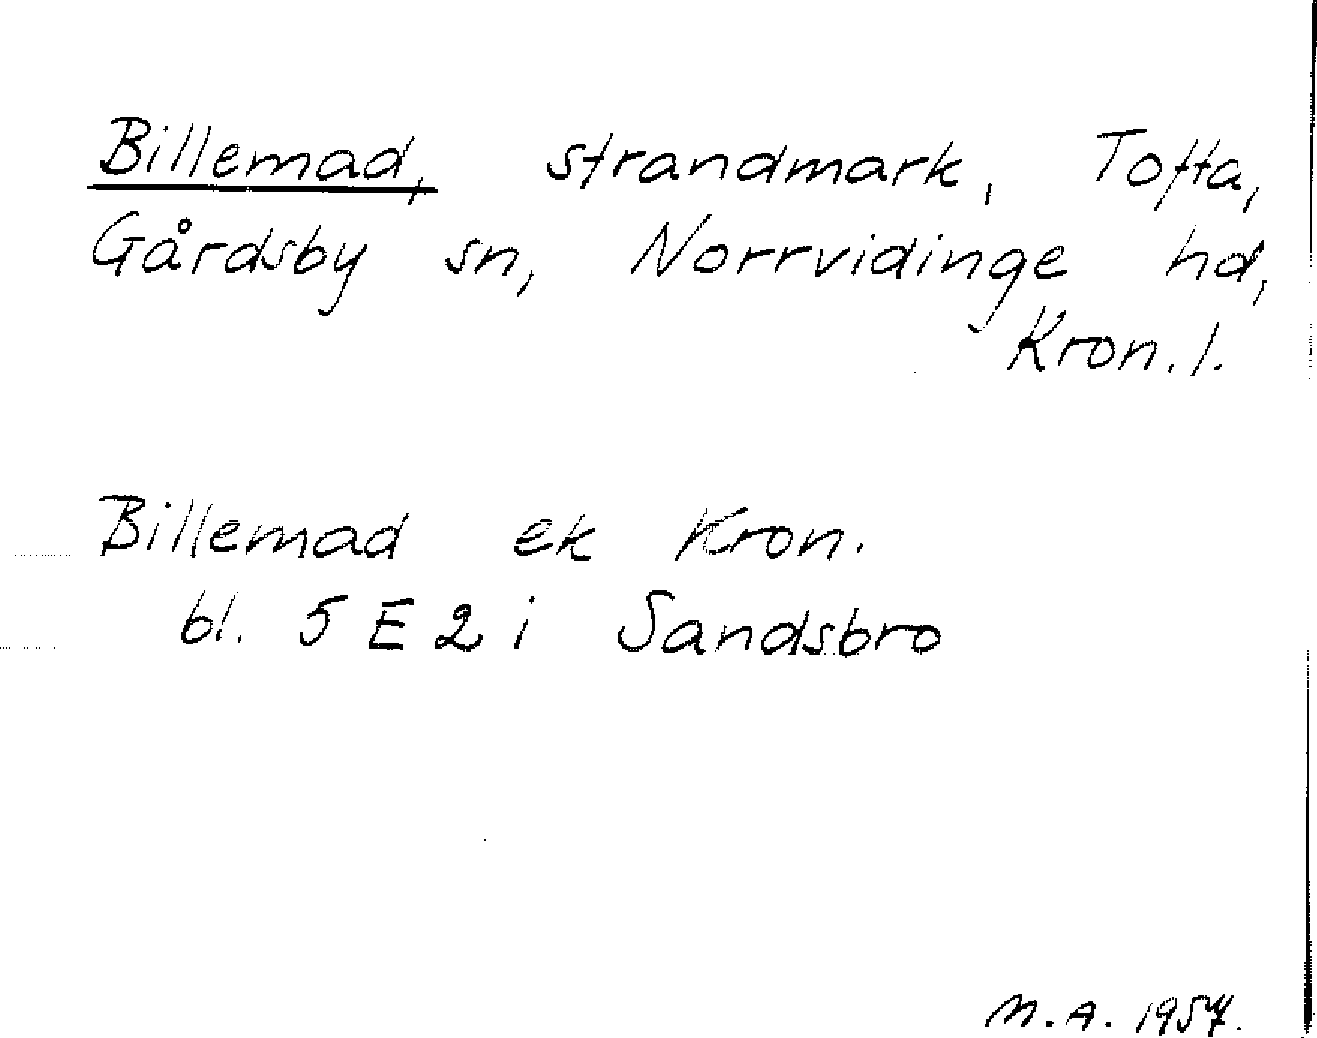 Billemad, strandmark, Tofta,
Gårdsby sn, Norrvidinge hd,
Kron. l.
Billemad ek Kron.
bl. 5 E 2 i Sandsbro
M. A. 1957.